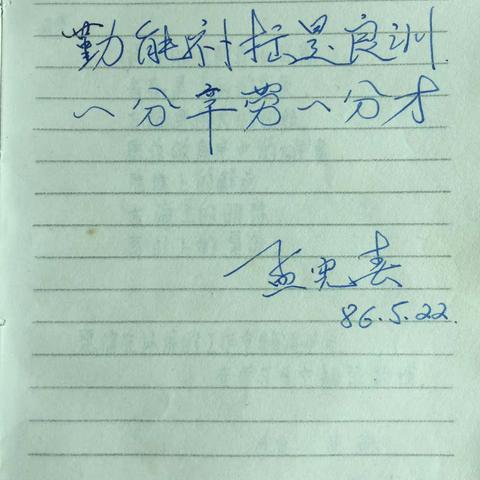 勤能补拙是良训
一分辛劳一分才
孟宪春
86.5.22.